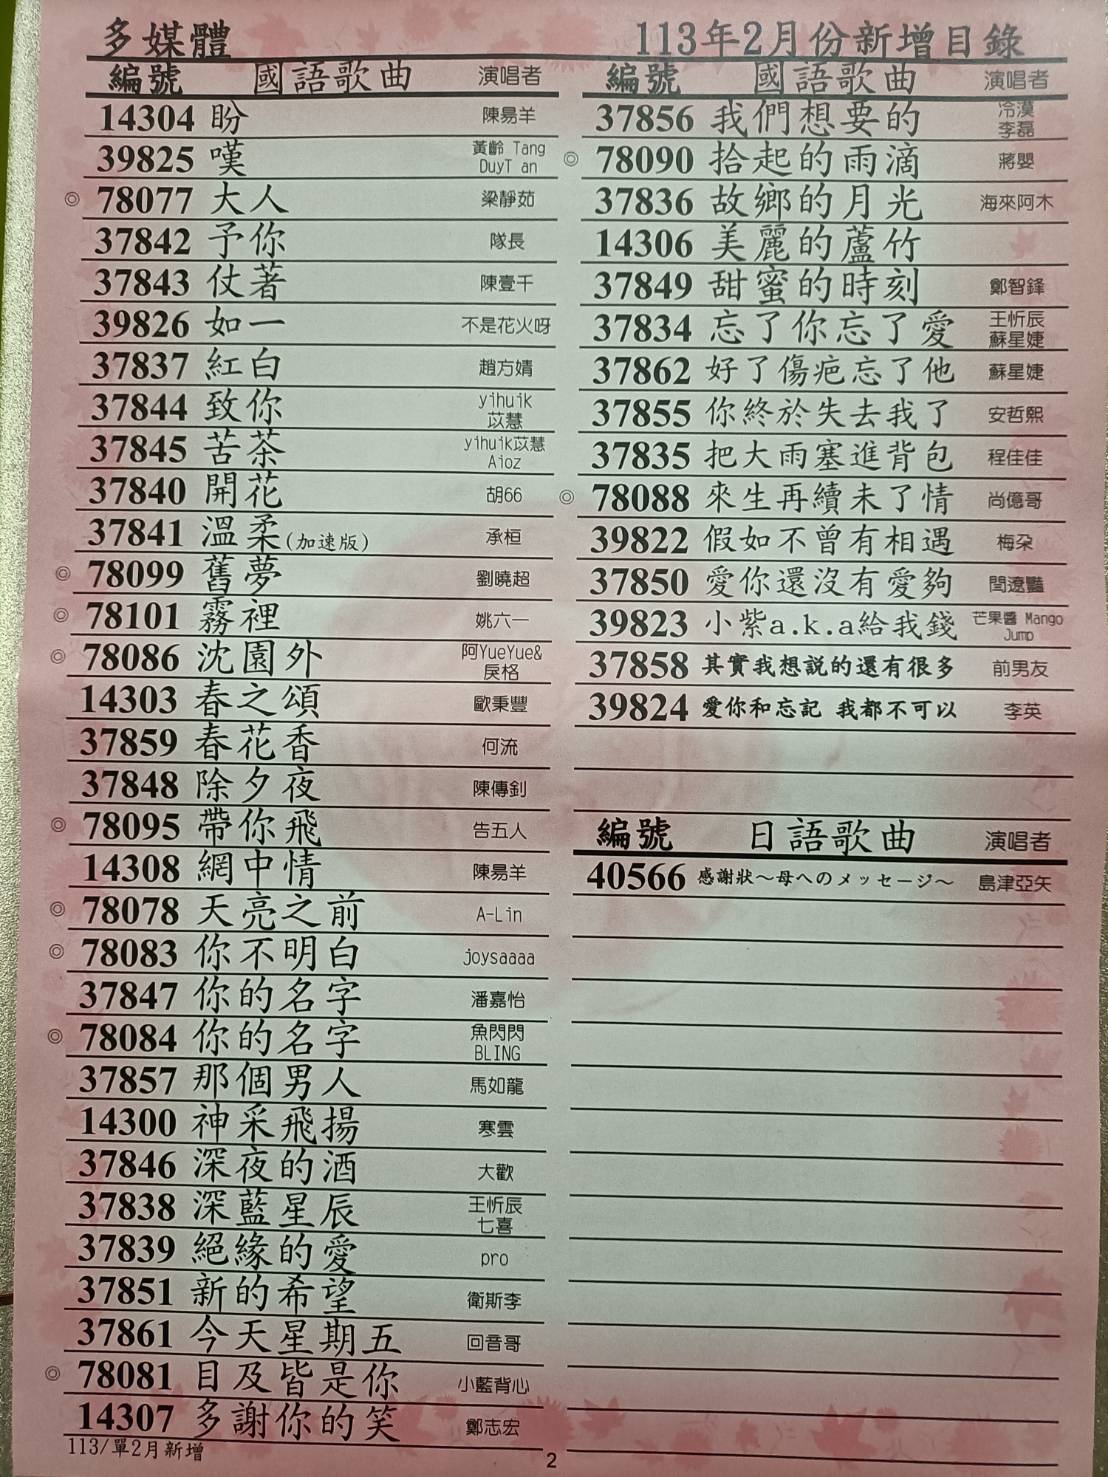 多媒體 113年2月份新增目錄
編號 國語歌曲 演唱者
14304 盼 陳易羊
39825 嘆 黃齡 Tang DuyT an
◎ 78077 大人 梁靜茹
37842 予你 隊長
37843 仗著 陳壹千
39826 如一 不是花火呀
37837 紅白 趙方婧
37844 致你 yihuik 苡慧
37845 苦茶 yihuik苡慧 Aioz
37840 開花 胡66
37841 溫柔(加速版) 承桓
◎ 78099 舊夢 劉曉超
◎ 78101 霧裡 姚六一
◎ 78086 沈園外 阿YueYue& 戾格
14303 春之頌 歐秉豐
37859 春花香 何流
37848 除夕夜 陳傳釗
◎ 78095 帶你飛 告五人
14308 網中情 陳易羊
◎ 78078 天亮之前 A-Lin
◎ 78083 你不明白 joysaaaa
37847 你的名字 潘嘉怡
◎ 78084 你的名字 魚閃閃 BLING
37857 那個男人 馬如龍
14300 神采飛揚 寒雲
37846 深夜的酒 大歡
37838 深藍星辰 王忻辰 七喜
37839 絕緣的愛 pro
37851 新的希望 衛斯李
37861 今天星期五 回音哥
◎ 78081 目及皆是你 小藍背心
14307 多謝你的笑 鄭志宏
113/單2月新增
編號 國語歌曲 演唱者
37856 我們想要的 冷漠 李磊
◎ 78090 拾起的雨滴 蔣嬰
37836 故鄉的月光 海來阿木
14306 美麗的蘆竹
37849 甜蜜的時刻 鄭智鋒
37834 忘了你忘了愛 王忻辰 蘇星婕
37862 好了傷疤忘了他 蘇星婕
37855 你終於失去我了 安哲熙
37835 把大雨塞進背包 程佳佳
◎ 78088 來生再續未了情 尚億哥
39822 假如不曾有相遇 梅朵
37850 愛你還沒有愛夠 閆遼豔
39823 小紫a.k.a給我錢 芒果醬 Mango Jump
37858 其實我想說的還有很多 前男友
39824 愛你和忘記 我都不可以 李英
編號 日語歌曲 演唱者
40566 感謝狀～母へのメッセージ～ 島津亞矢
2